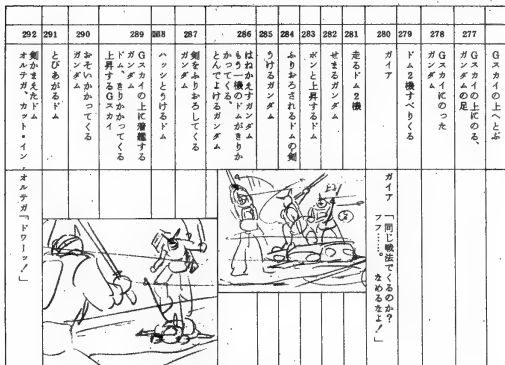 Gスカイの上へとぶ
277
Gスカイの上にのる、
ガンダムの足
278
Gスカイにのった
ガンダム
279
ドム2機すべりくる
280
ガイア
ガイア「同じ戦法でくるのか?
フフ……。
なめるなよ!」
281
走るドム2機
282
せまるガンダム
283
ポンと上昇するドム
284
ふりおろされるドムの剣
285
うけるガンダム
286
はねかえすガンダム
もう一機のドムがきりか
かってくる、
とんでよけるガンダム
287
剣をふりおろしてくる
ガンダム
288
ハッシとうけるドム
289
Gスカイの上に着艦する
ガンダム
ドム、きりかかってくる
上昇するGスカイ
290
おそいかかってくる
ガンダム
291
とびあがるドム
292
剣かまえたドム
オルテガ、カット・イン
オルテガ「ドワーッ!」